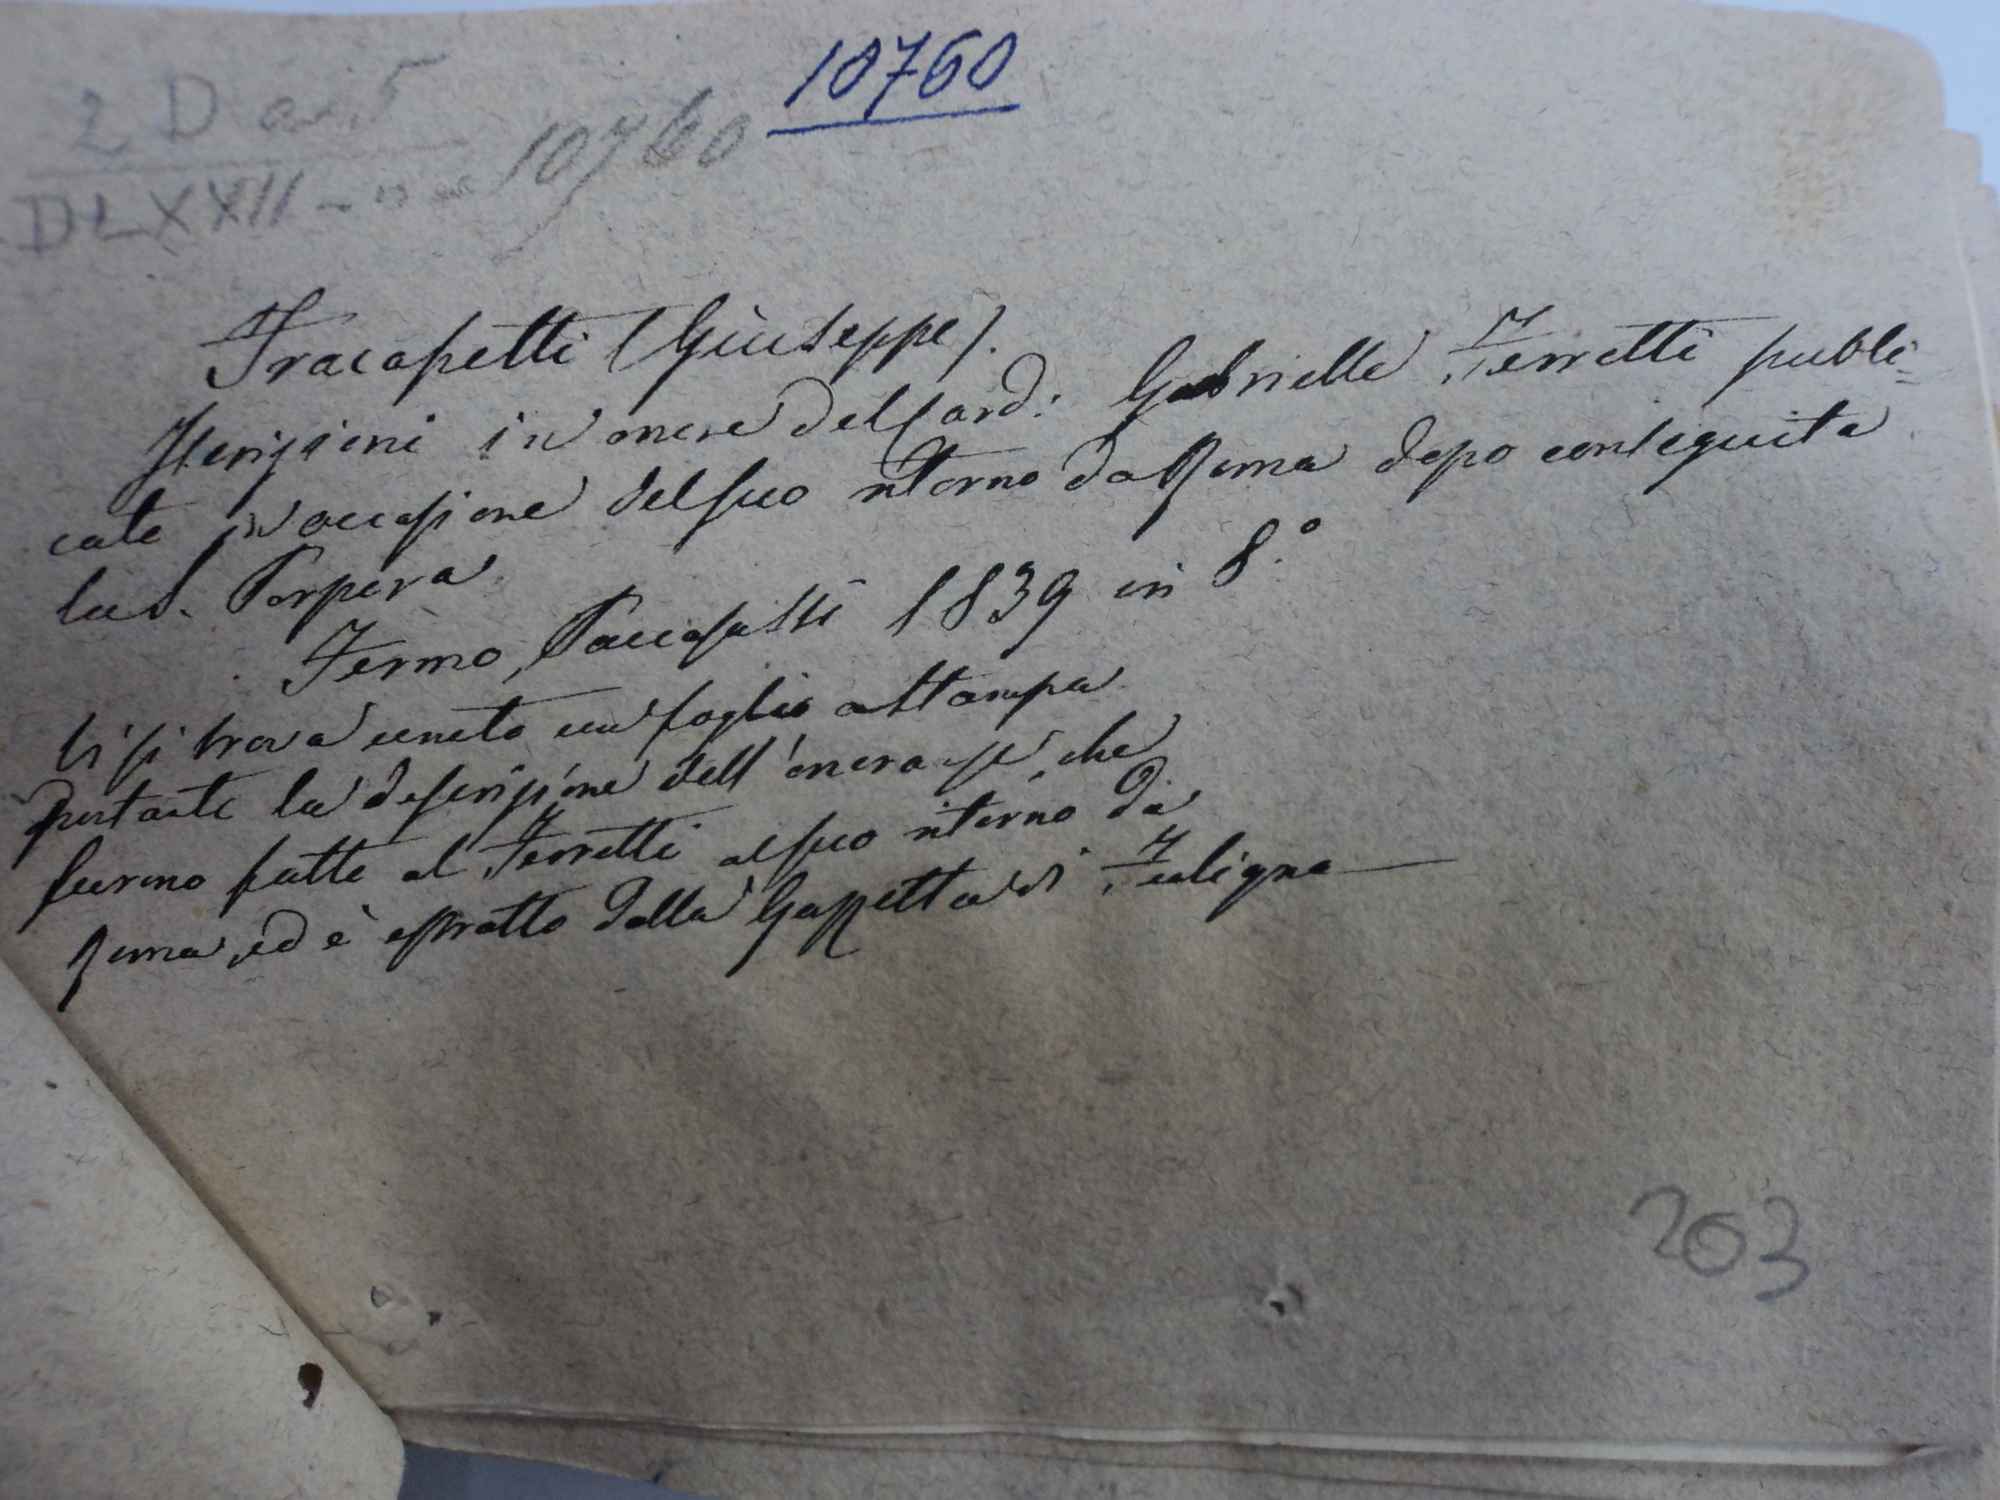 10760
2 D
DLXXII - 10760
Fracapetti (Giuseppe).
Iscrizioni in onore del Card: Gabrielle Ferretti publi=
cate in occasione del suo ritorno da Roma dopo conseguita
la S. Porpora
Fermo, Paccasassi 1839 in 8.°
Vi si trova unito un foglio a stampa
portante la descrizione dell'onoranze, che
furono fatte al Ferretti al suo ritorno da
Roma, ed è estratto dalla Gazzetta di Fuligno
203